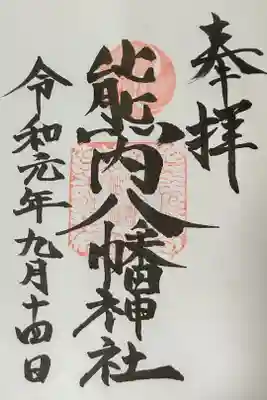 奉拝
熊内八幡神社
令和元年九月十四日